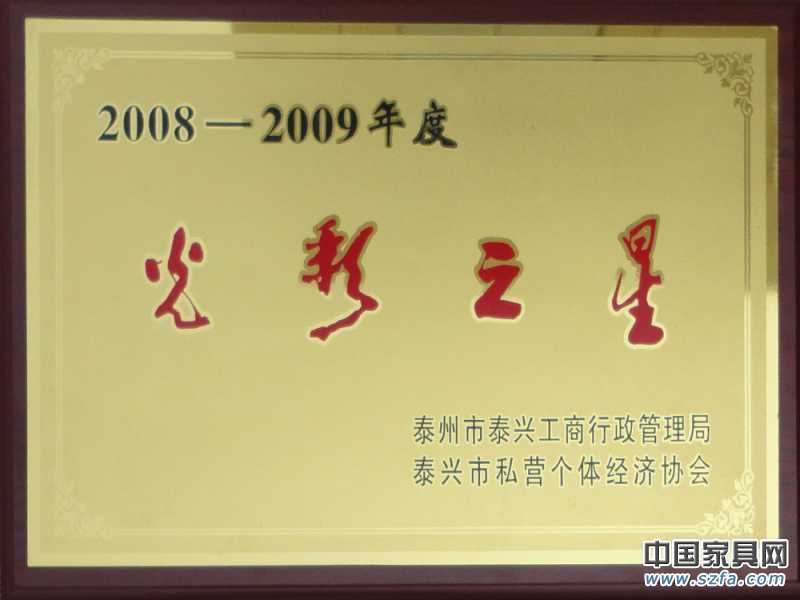 2008—2009年度
光彩之星
泰州市泰兴工商行政管理局
泰兴市私营个体经济协会
中国家具网
www.szfa.com